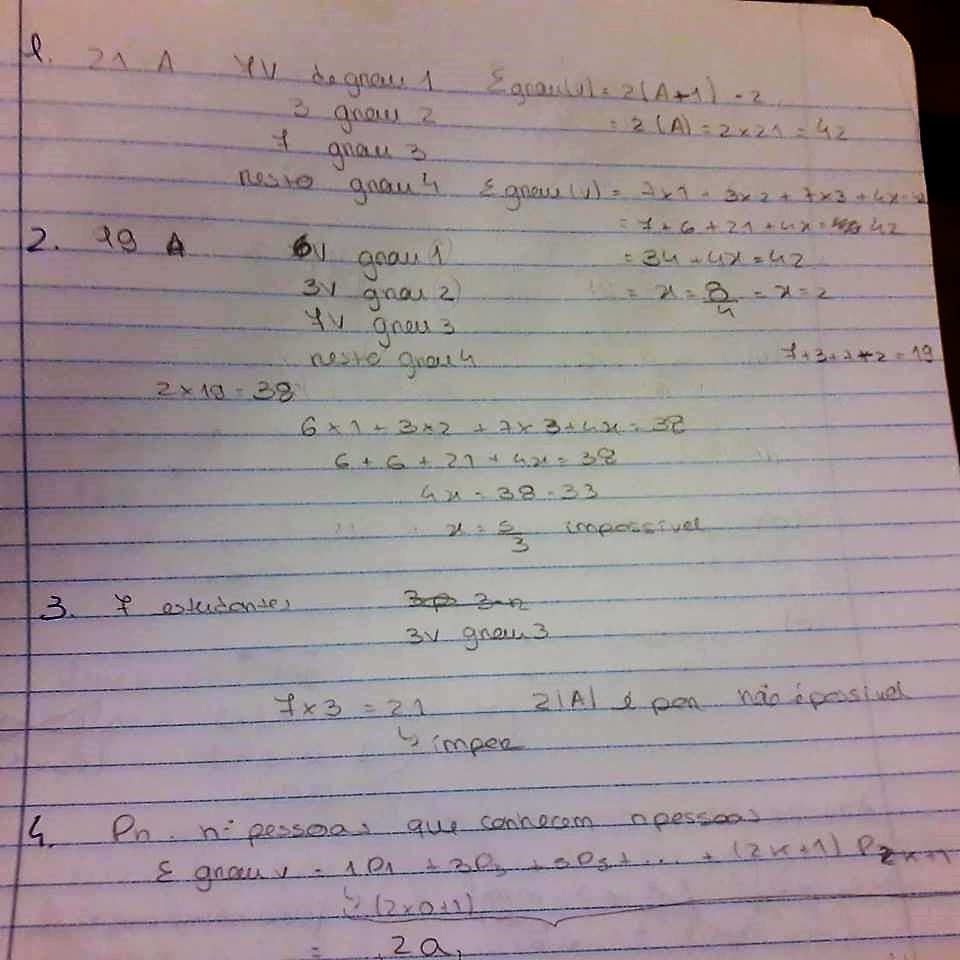 1. 21 A 7V de grau 1 Σ grau(v) = 2(A+1) - 2
3 grau 2 = 2(A) = 2x21 = 42
7 grau 3
resto grau 4 Σ grau(v) = 7x1 + 3x2 + 7x3 + 4x =
= 7+6+21+4x = 42
2. 19 A 6V grau 1) = 34+4x = 42
3V grau 2) = x = 8/4 = x = 2
7V grau 3
resto grau 4 7+3+7+2 = 19
2x19 = 38
6x1 + 3x2 + 7x3 + 4x = 38
6 + 6 + 21 + 4x = 38
4x = 38 - 33
x = 5/3 impossível
3. 7 estudantes
3V grau 3
7x3 = 21 2|A| é par não é possível
↳ impar
4. Pn. nº pessoas que conhecem n pessoas
Σ grau v = 1P1 + 3P3 + 5P5 + ... + (2x+1) P2x+1
↳ (2x0+1)
= 2a